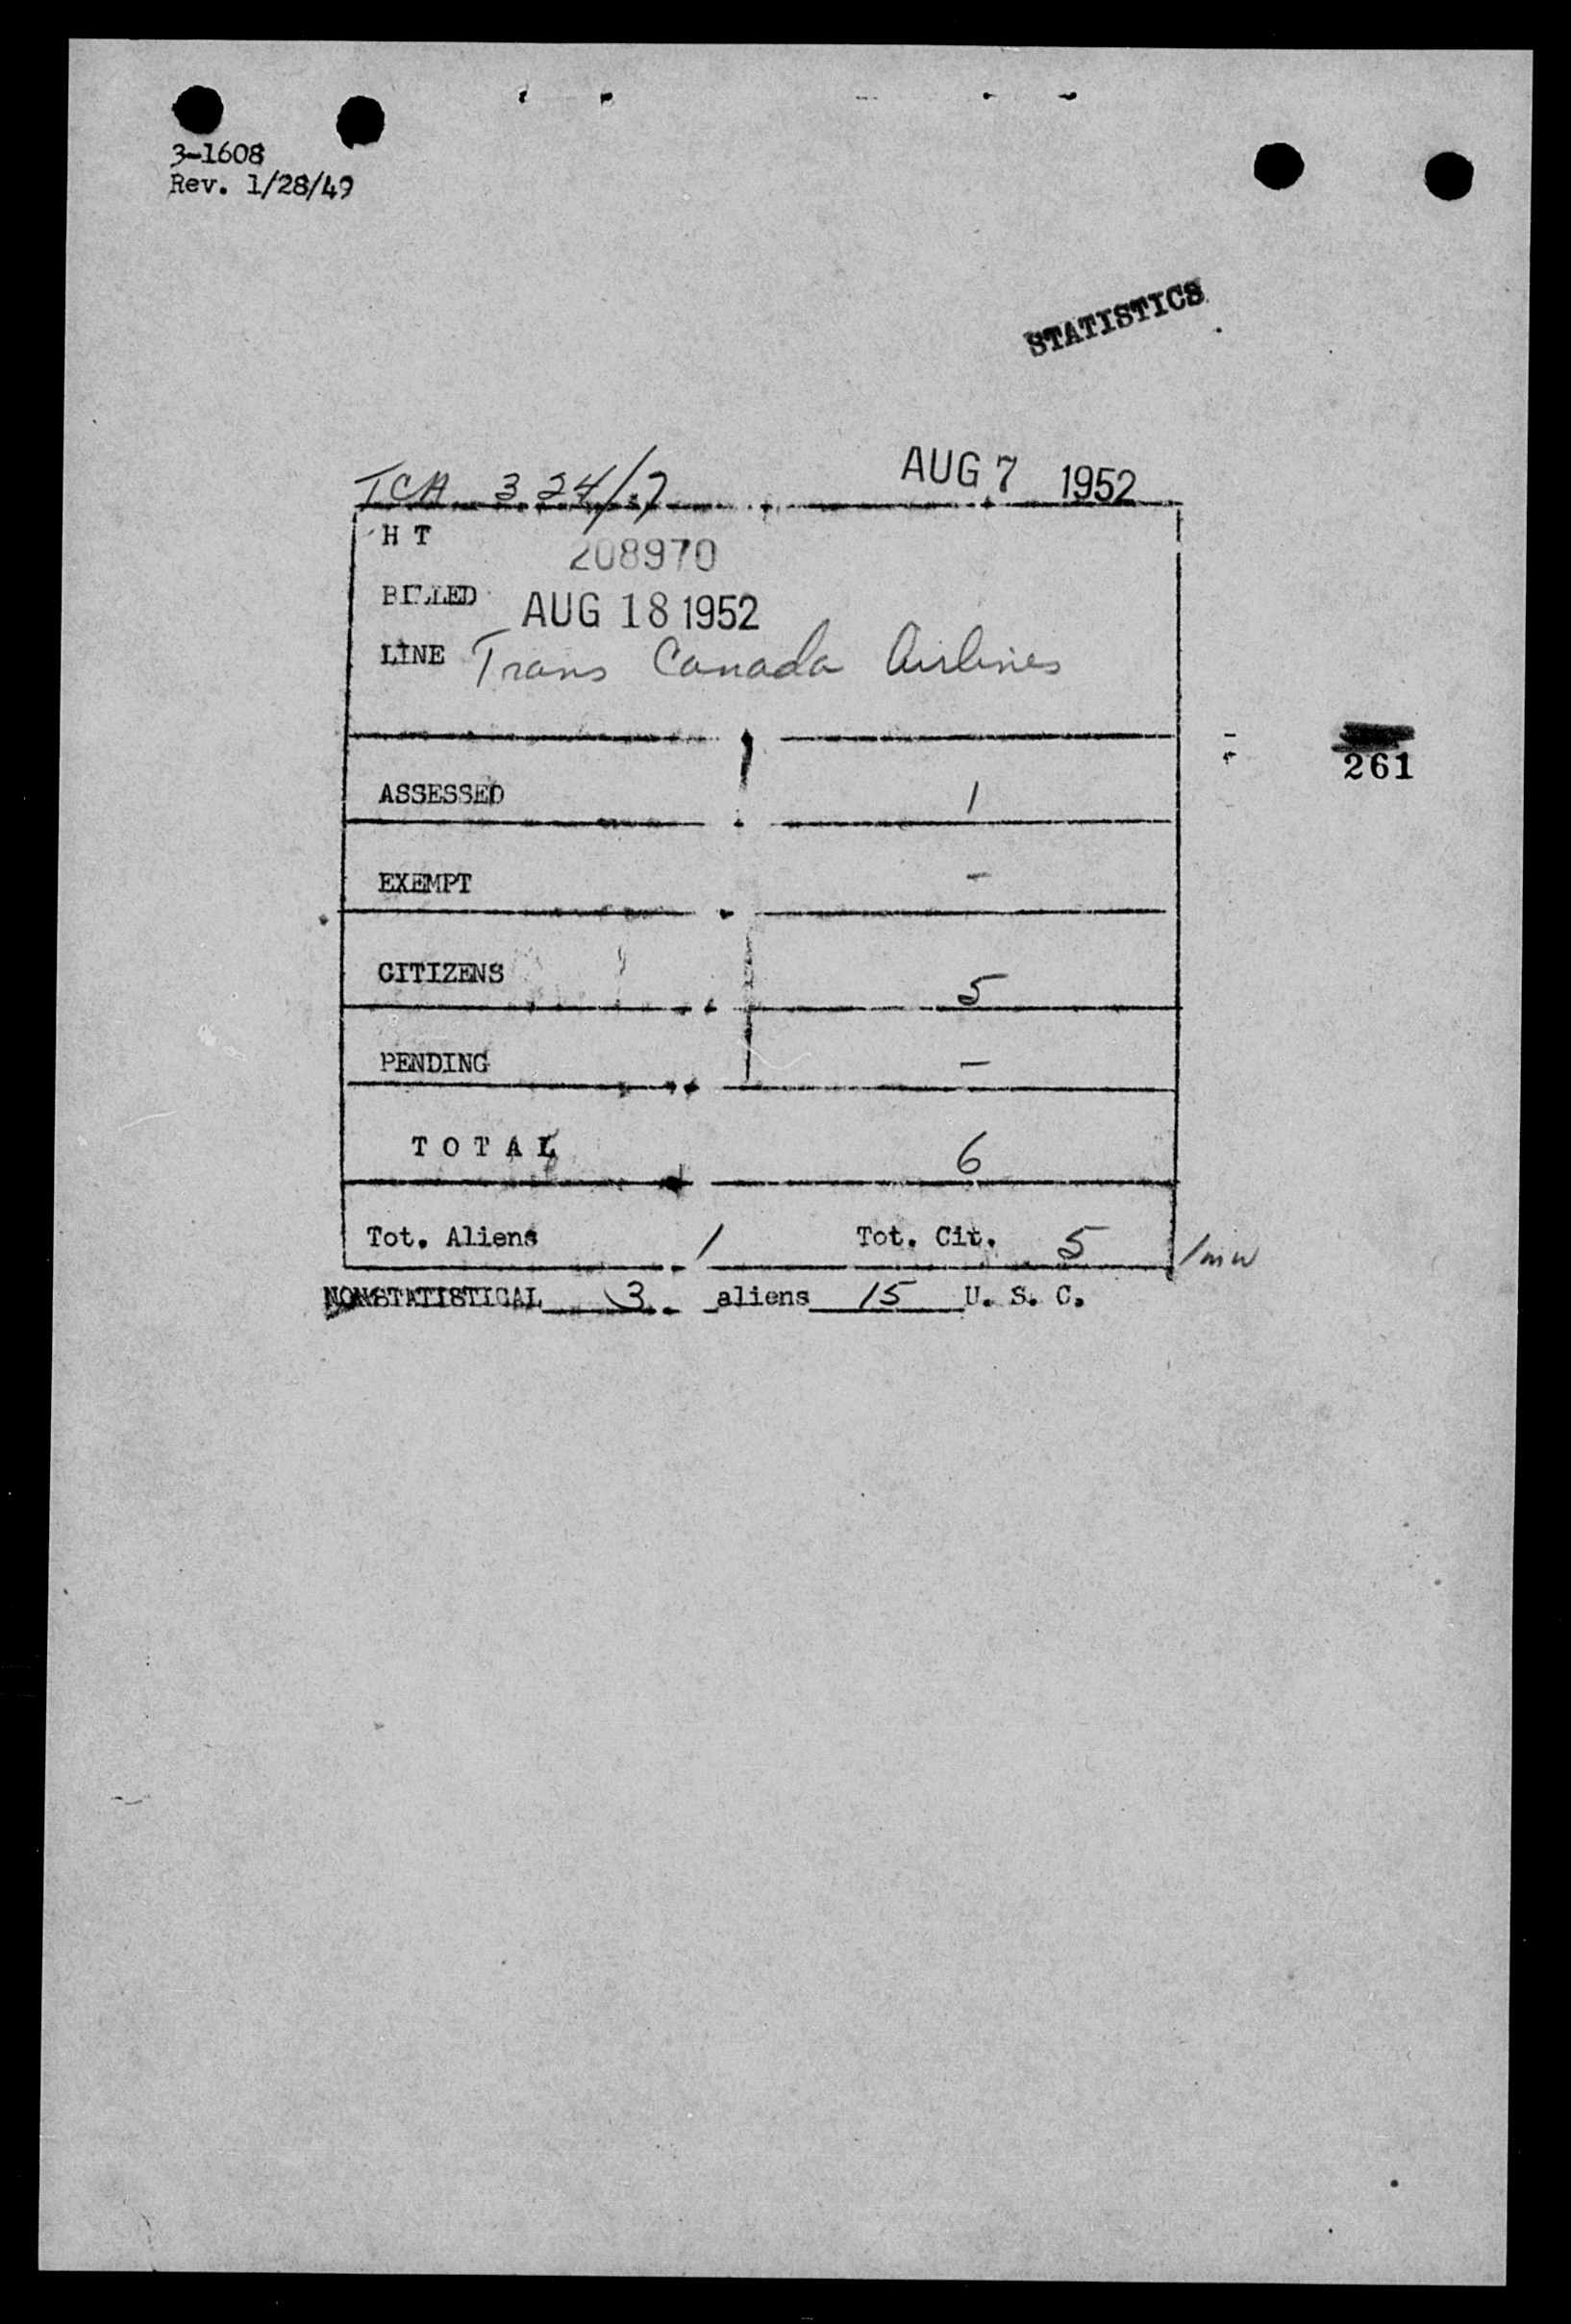 3-1608
Rev. 1/28/49
STATISTICS
TCA 324/7 AUG 7 1952
H T 208970
BILLED AUG 18 1952
LINE Trans Canada Airlines
261
ASSESSED 1
EXEMPT -
CITIZENS 5
PENDING -
T O T A L 6
Tot. Aliens 1 Tot. Cit. 5
NONSTATISTICAL 3 aliens 15 U. S. C.